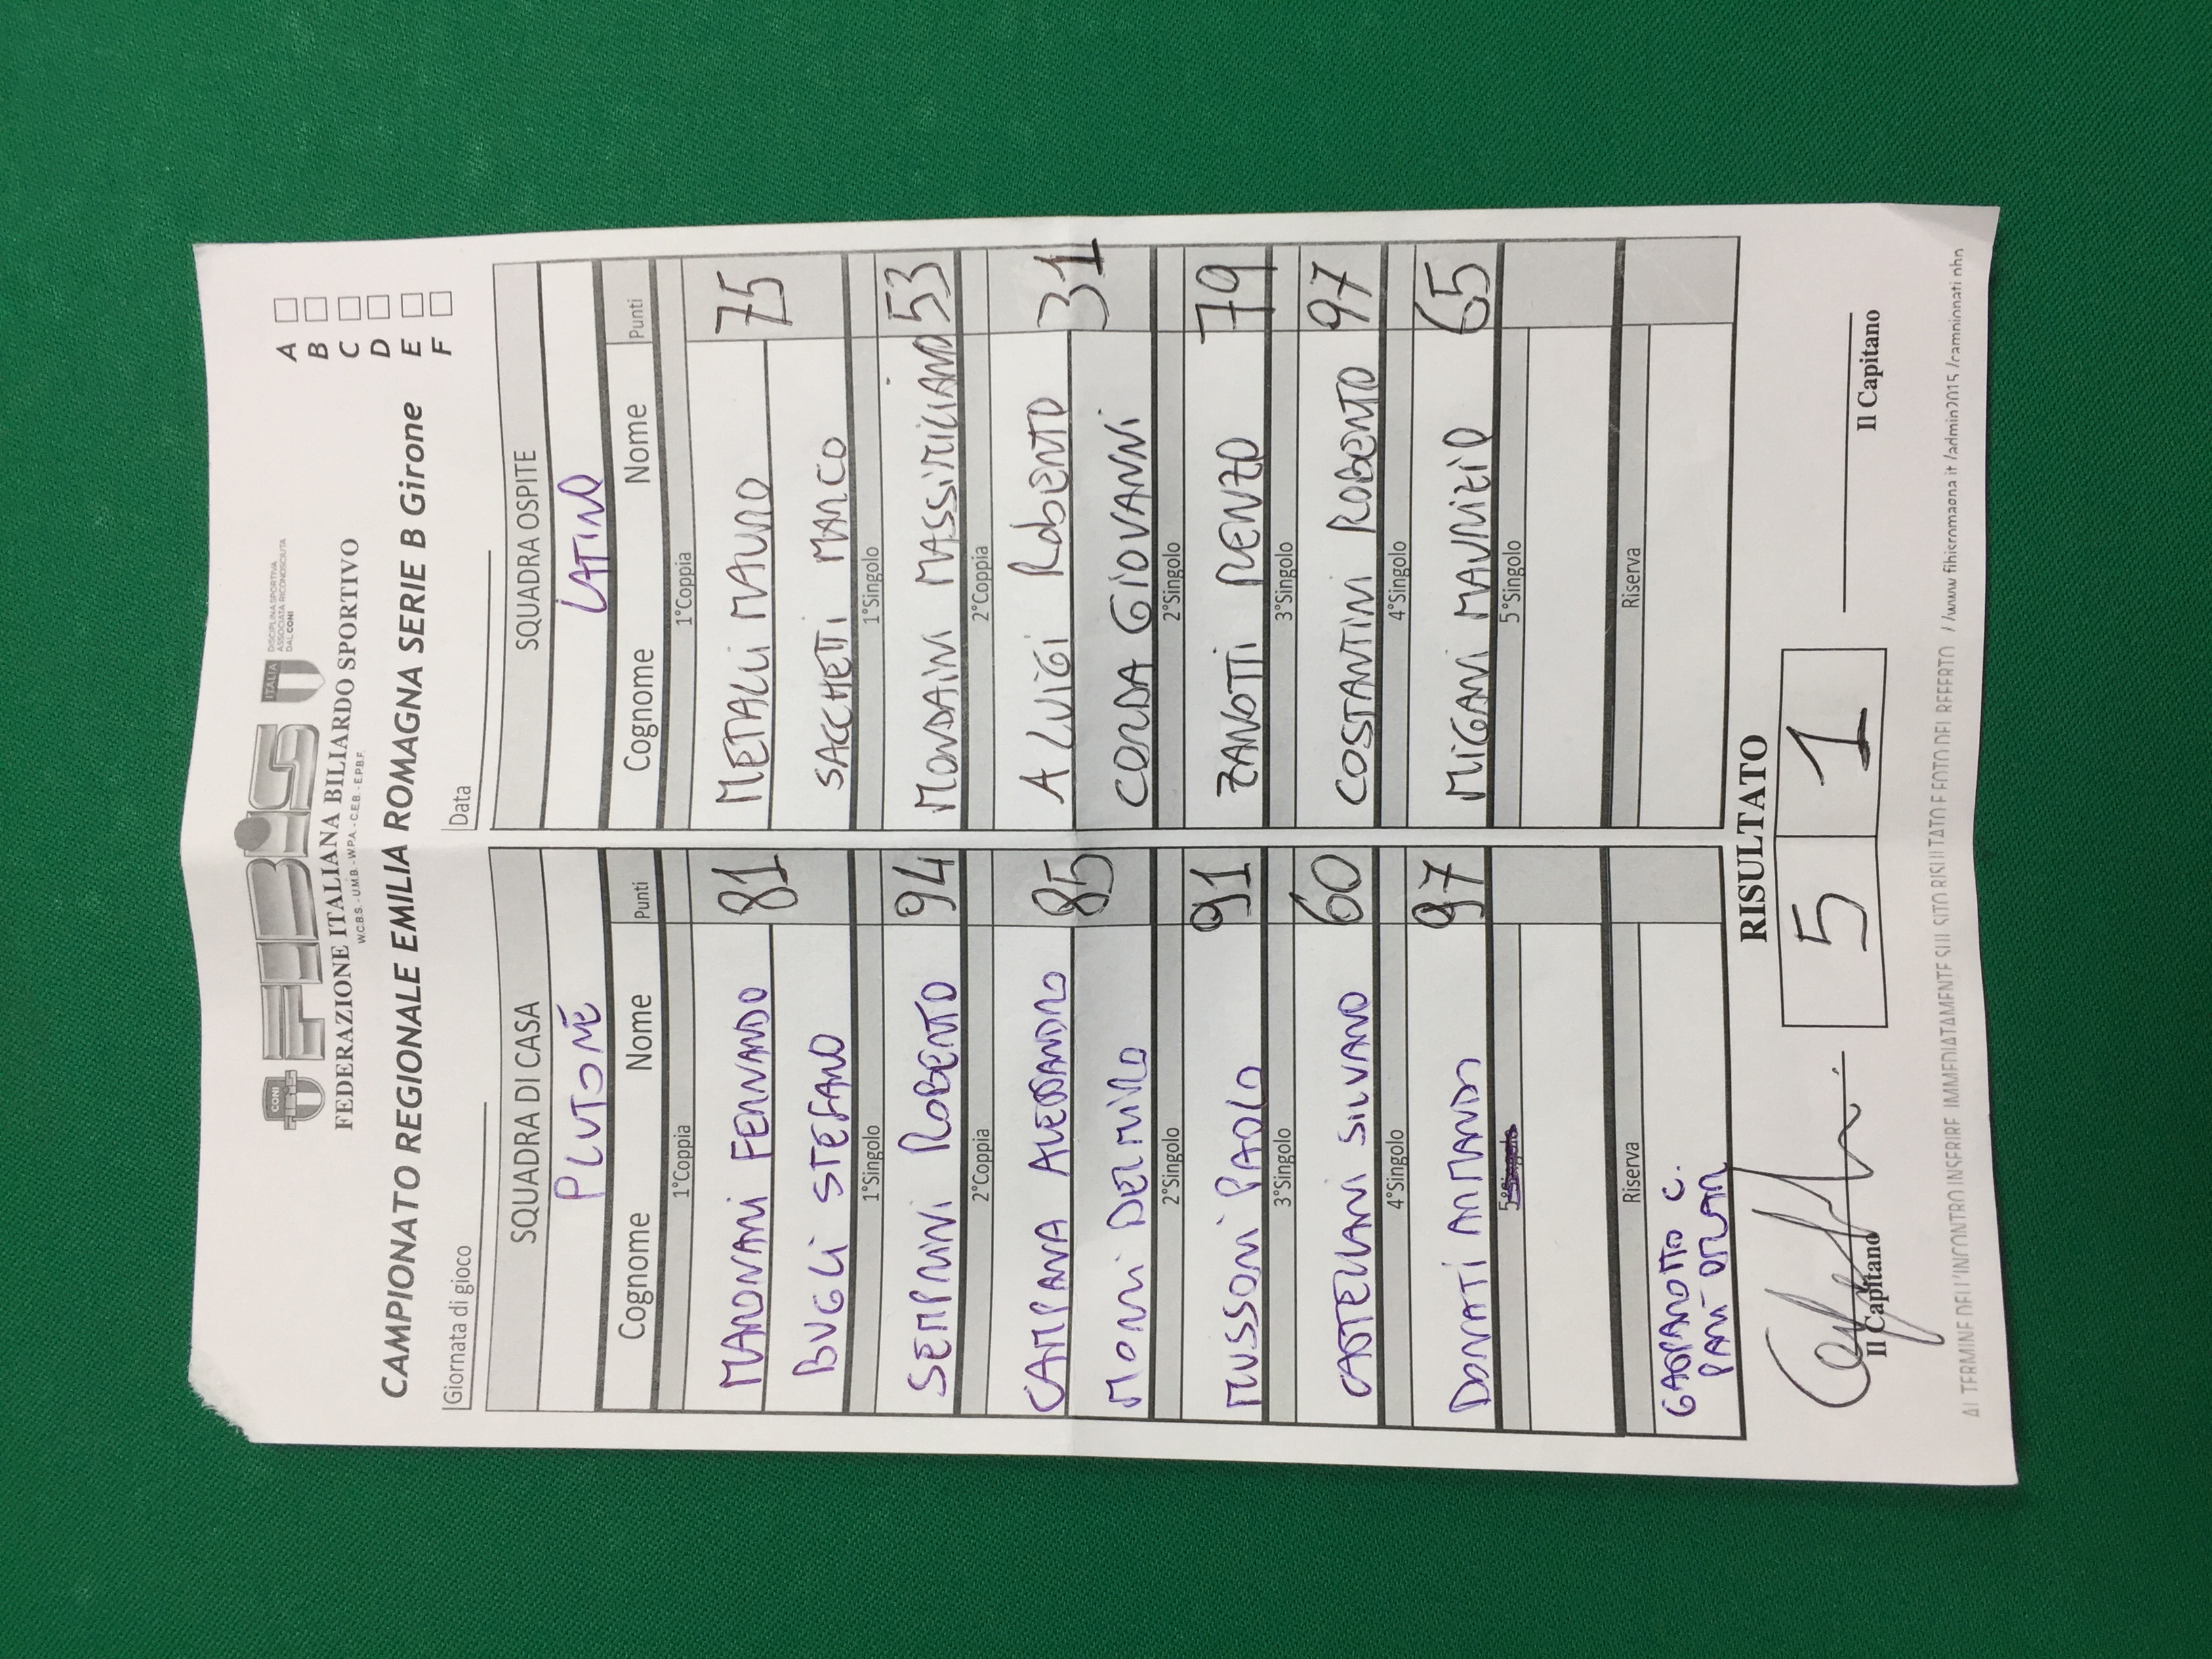 CONI
FIBiS
ITALIA
DISCIPLINA SPORTIVA
ASSOCIATA RICONOSCIUTA
DAL CONI
FEDERAZIONE ITALIANA BILIARDO SPORTIVO
W.C.B.S. - U.M.B. - W.P.A. - C.E.B. - E.P.B.F.
CAMPIONATO REGIONALE EMILIA ROMAGNA SERIE B Girone
A
B
C
D
E
F
Giornata di gioco
Data
SQUADRA DI CASA
PLUTONE
Cognome Nome Punti
1°Coppia
MANOVANI FERNANDO 81
BUGLI STEFANO
1°Singolo
SEMPRINI ROBERTO 94
2°Coppia
CAMPANA ALESSANDRO 85
MORRI DERMILO
2°Singolo
MUSSONI PAOLO 91
3°Singolo
CASTELLANI SILVANO 60
4°Singolo
DONATI ARMANDO 97
5°Singolo
Riserva
GASPAROTTO C.
SQUADRA OSPITE
LATINO
Cognome Nome Punti
1°Coppia
METALLI MAURO 75
SACCHETTI MARCO
1°Singolo
MONDAINI MASSIMILIANO 53
2°Coppia
ALUIGI RobERTO 31
CORDA GIOVANNI
2°Singolo
ZANOTTI RENZO 79
3°Singolo
COSTANTINI ROBERTO 97
4°Singolo
MIGANI MAURIZIO 65
5°Singolo
Riserva
RISULTATO
5 1
Il Capitano
Il Capitano
AL TERMINE DELL'INCONTRO INSERIRE IMMEDIATAMENTE SUL SITO RISULTATO E FOTO DEL REFERTO